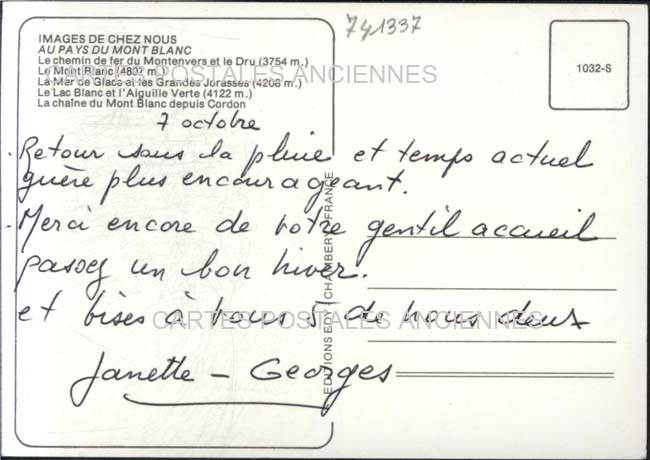 741337
IMAGES DE CHEZ NOUS
AU PAYS DU MONT BLANC
Le chemin de fer du Montenvers et le Dru (3754 m.)
Le Mont Blanc (4807 m.)
La Mer de Glace et les Grandes Jorasses (4206 m.)
Le Lac Blanc et l'Aiguille Verte (4122 m.)
La chaîne du Mont Blanc depuis Cordon
1032-S
CARTES POSTALES ANCIENNES
7 octobre
Retour sous la pluie et temps actuel
guère plus encourageant.
Merci encore de votre gentil accueil
passez un bon hiver.
et bises à vous 5 de nous deux
CARTES POSTALES ANCIENNES
Janette - Georges
EDITIONS EDY CHAMBERY FRANCE